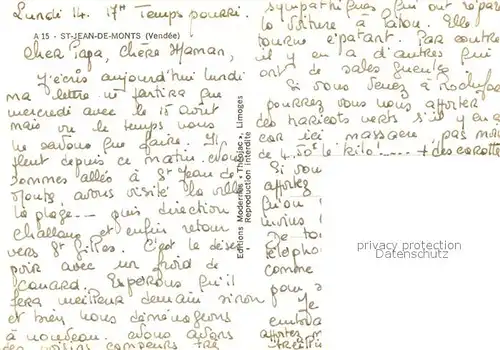 Lundi 14. 17H Temps pourri.
A 15 - ST-JEAN-DE-MONTS (Vendée)
Cher Papa, chère Maman,
J'écris aujourd'hui lundi
ma lettre ne partira que
mercredi avec le 15 Août
mais vu le temps nous
ne savons que faire. Il
pleut depuis ce matin. Nous
sommes allés à St Jean de
Monts, avons visité la ville
la plage --- puis direction
Challans et enfin retour
vers St Gilles. C'est le déses-
poir avec un froid de
canard. Espérons qu'il
fera meilleur demain sinon
et bien nous déménageons
à nouveau. Nous avons
des voisins campeurs très
Editions Modernes - Théojac - Limoges
Reproduction interdite
sympathiques qui ont réparé
la voiture à Elle
tourne épatant. Par contre
il y en a d'autres qui
ont de sales gueules
Si vous venez à Rochefor
pourrez vous nous apporter
des haricots verts s'il y en a
car ici massacre pas moins
de 4,50F le kilo! ---- + des carottes
Si vous
apportez
Qu'on
Je
téléphon
comme
pour
Je
embra
privacy protection
Datenschutz